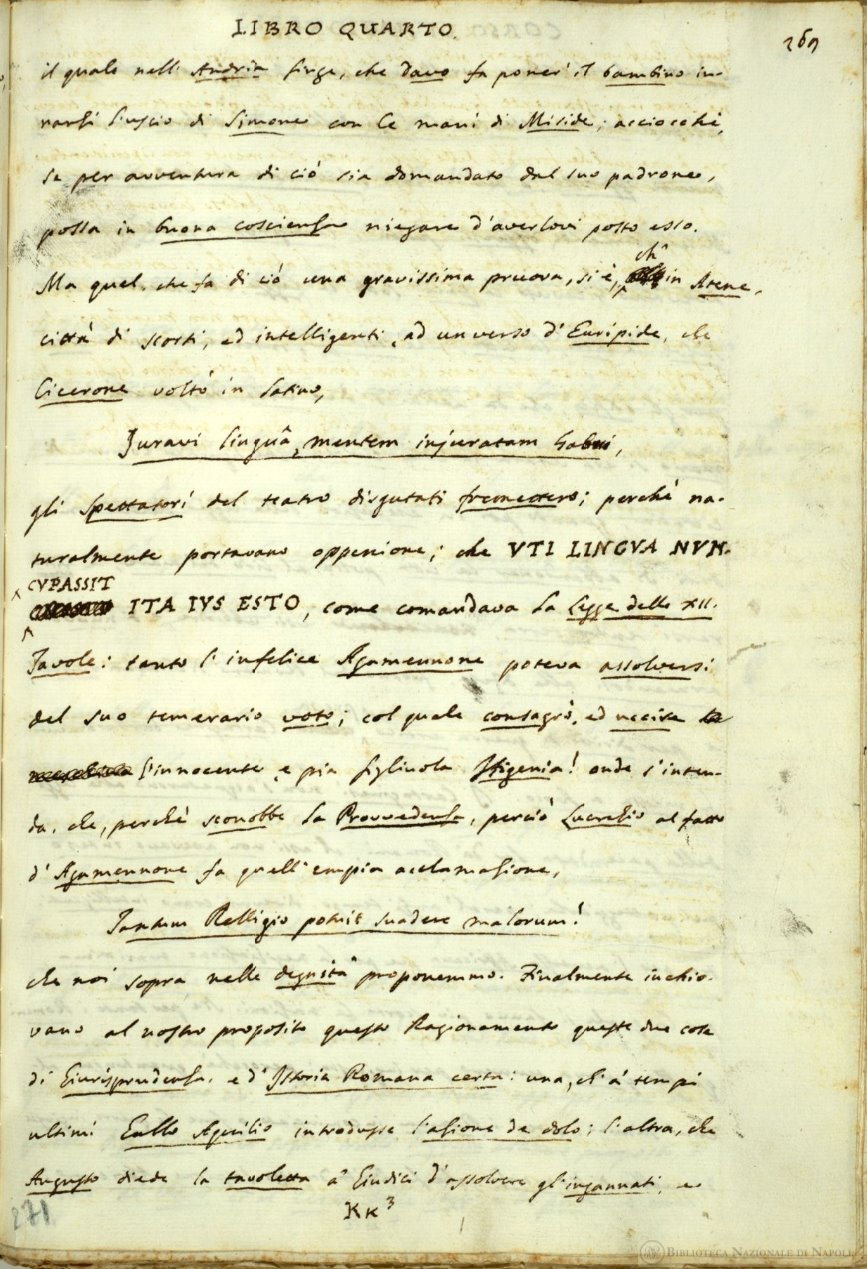 LIBRO QUARTO.
269
il quale nell'Andria finge, che Davo fa poner' il bambino in-
nanzi l'uscio di Simone con le mani di Miside; acciocchè,
se per avventura di ciò sia domandato dal suo padrone,
possa in buona coscienza niegare d'averlovi posto esso.
Ma quel, che fa di ciò una gravissima pruova, si è, ch' in Atene,
città di scorti, ed intelligenti, ad un verso d'Euripide, che
Cicerone voltò in latino,
Juravi linguâ, mentem injuratam habui,
gli Spettatori del teatro disgutati fremettero; perchè na-
turalmente portavano oppenione; che VTI LINGVA NVN-
CVPASSIT
ITA IVS ESTO, come comandava la Legge delle XII.
Tavole: tanto l'infelice Agamennone poteva assolversi
del suo temerario voto; col quale consagrò, ed uccise
l'innocente, e pia figliuola Ifigenia! onde s'inten-
da, che, perchè sconobbe la Provvedenza, perciò Lucrezio al fatto
d'Agamennone fa quell'empia acclamazione,
Tantum Relligio potuit suadere malorum!
che noi sopra nelle degnità proponemmo. Finalmente inchio-
vano al nostro proposito questo Ragionamento queste due cose
di Giurisprudenza, e d'Istoria Romana certa: una, ch'a' tempi
ultimi Gallo Aquilio introdusse l'azione de dolo; l'altra, che
Augusto diede la tavoletta a' Giudici d'assolvere gl'ingannati, e
Kk3
271
BIBLIOTECA NAZIONALE DI NAPOLI